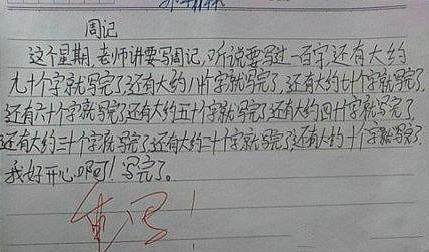 周记
这个星期,老师讲要写周记,听说要写过一百字,还有大约
九十个字就写完了,还有大约八十个字就写完了,还有大约七十个字就写完了,
还有六十个字就写完了还有大约五十个字就写完了还有大约四十个字就写完了,
还有大约三十个字就写完了还有大约二十个字就写完了,还有大约十个字就写完了,
我好开心啊!写完了。
重写!